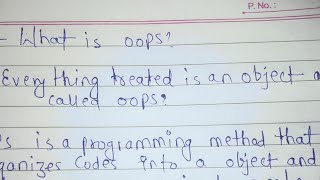 P. No.:
- What is oops?
Everything treated is an object a
called oops,
's is a programming method that
ganizes codes into a object and